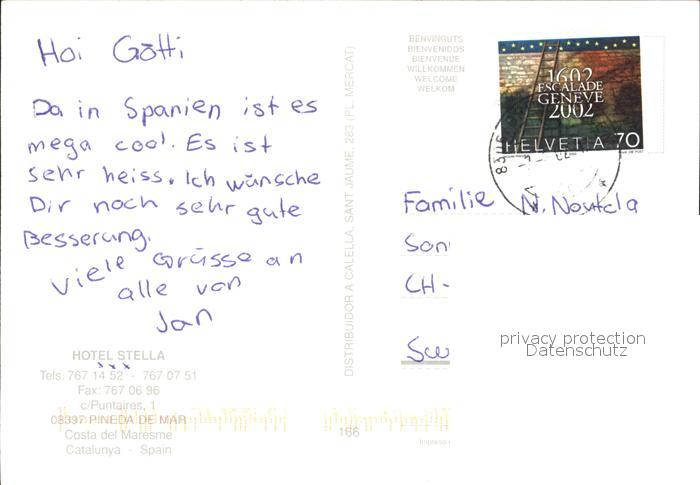 Hoi Götti
Da in Spanien ist es
mega cool. Es ist
sehr heiss. Ich wünsche
Dir noch sehr gute
Besserung.
Viele Grüsse an
alle von
Jan
HOTEL STELLA
Tels. 767 14 52 - 767 07 51
Fax: 767 06 96
c/Puntaires, 1
08397 PINEDA DE MAR
Costa del Maresme
Catalunya - Spain
DISTRIBUIDOR A CALELLA, SANT JAUME, 283 (PL. MERCAT)
166
BENVINGUTS
BIENVENIDOS
BIENVENUE
WILLKOMMEN
WELCOME
WELKOM
1602
ESCALADE
GENEVE
2002
HELVETIA 70
Familie N.
CH-
privacy protection
Datenschutz